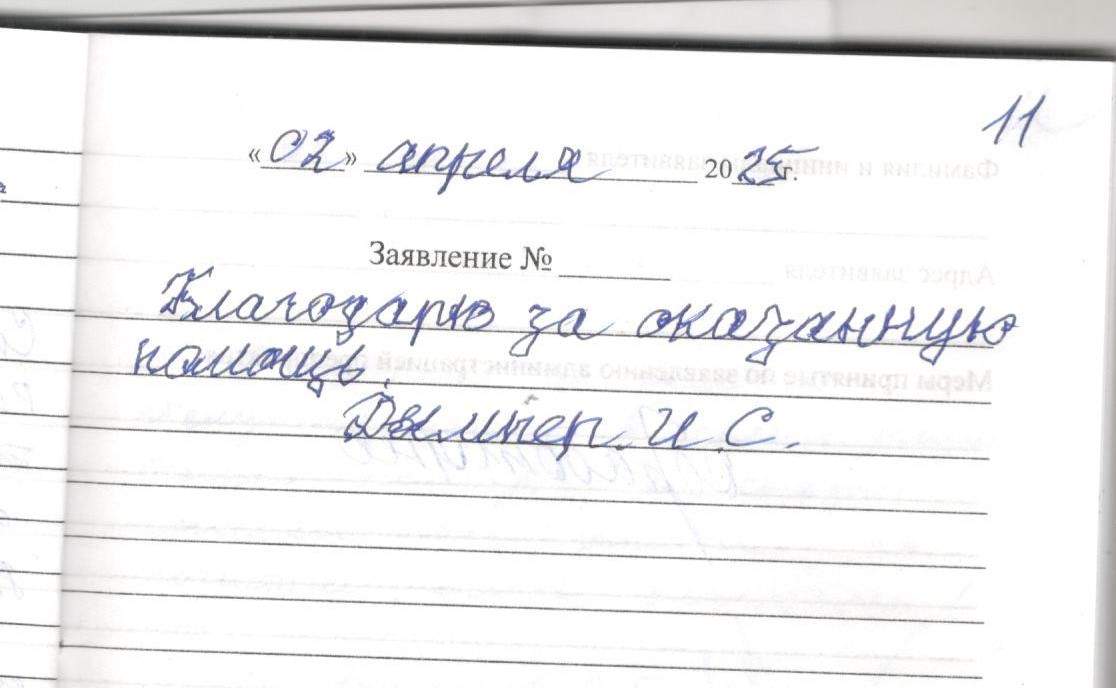 11
«02» апреля 2025 г.
Заявление № ______
Благодарю за оказанную
помощь.
И. С.